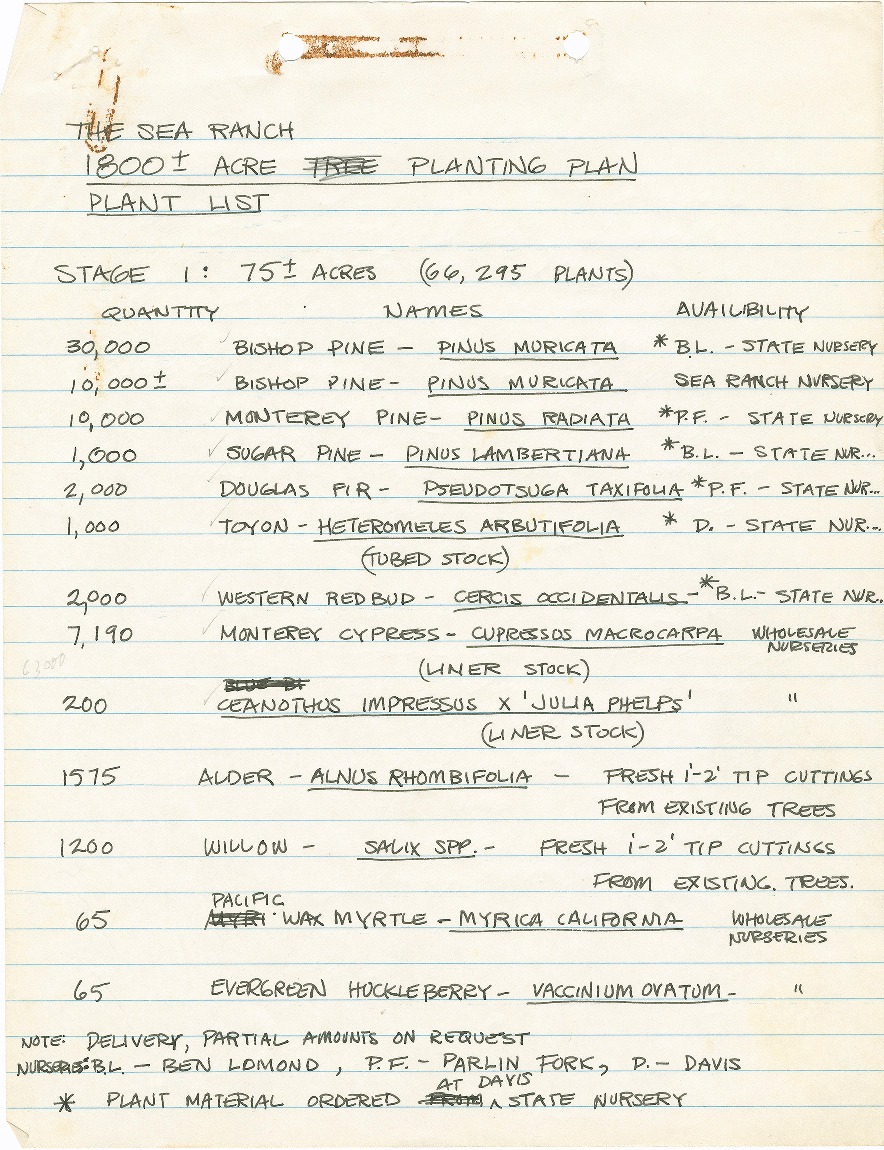 THE SEA RANCH
1800± ACRE TREE PLANTING PLAN
PLANT LIST
STAGE 1: 75± ACRES (66,295 PLANTS)
QUANTITY NAMES AVAILIBILITY
30,000 BISHOP PINE – PINUS MURICATA * B.L. – STATE NURSERY
10,000± BISHOP PINE – PINUS MURICATA SEA RANCH NURSERY
10,000 MONTEREY PINE – PINUS RADIATA * P.F. – STATE NURSERY
1,000 SUGAR PINE – PINUS LAMBERTIANA * B.L. – STATE NUR...
2,000 DOUGLAS FIR – PSEUDOTSUGA TAXIFOLIA * P.F. – STATE NUR...
1,000 TOYON – HETEROMELES ARBUTIFOLIA * D. – STATE NUR...
(TUBED STOCK)
2,000 WESTERN REDBUD – CERCIS OCCIDENTALIS – * B.L. – STATE NUR.
7,190 MONTEREY CYPRESS – CUPRESSUS MACROCARPA WHOLESALE
NURSERIES
63,000 (LINER STOCK)
BLUE BL
200 CEANOTHUS IMPRESSUS X 'JULIA PHELPS' "
(LINER STOCK)
1575 ALDER – ALNUS RHOMBIFOLIA – FRESH 1'-2' TIP CUTTINGS
FROM EXISTING TREES
1200 WILLOW – SALIX SPP. – FRESH 1'-2' TIP CUTTINGS
FROM EXISTING. TREES.
PACIFIC
65 MYRI WAX MYRTLE – MYRICA CALIFORNIA WHOLESALE
NURSERIES
65 EVERGREEN HUCKLEBERRY – VACCINIUM OVATUM – "
NOTE: DELIVERY, PARTIAL AMOUNTS ON REQUEST
NURSERIES: B.L. – BEN LOMOND, P.F. – PARLIN FORK, D. – DAVIS
AT DAVIS
* PLANT MATERIAL ORDERED FROM ^ STATE NURSERY